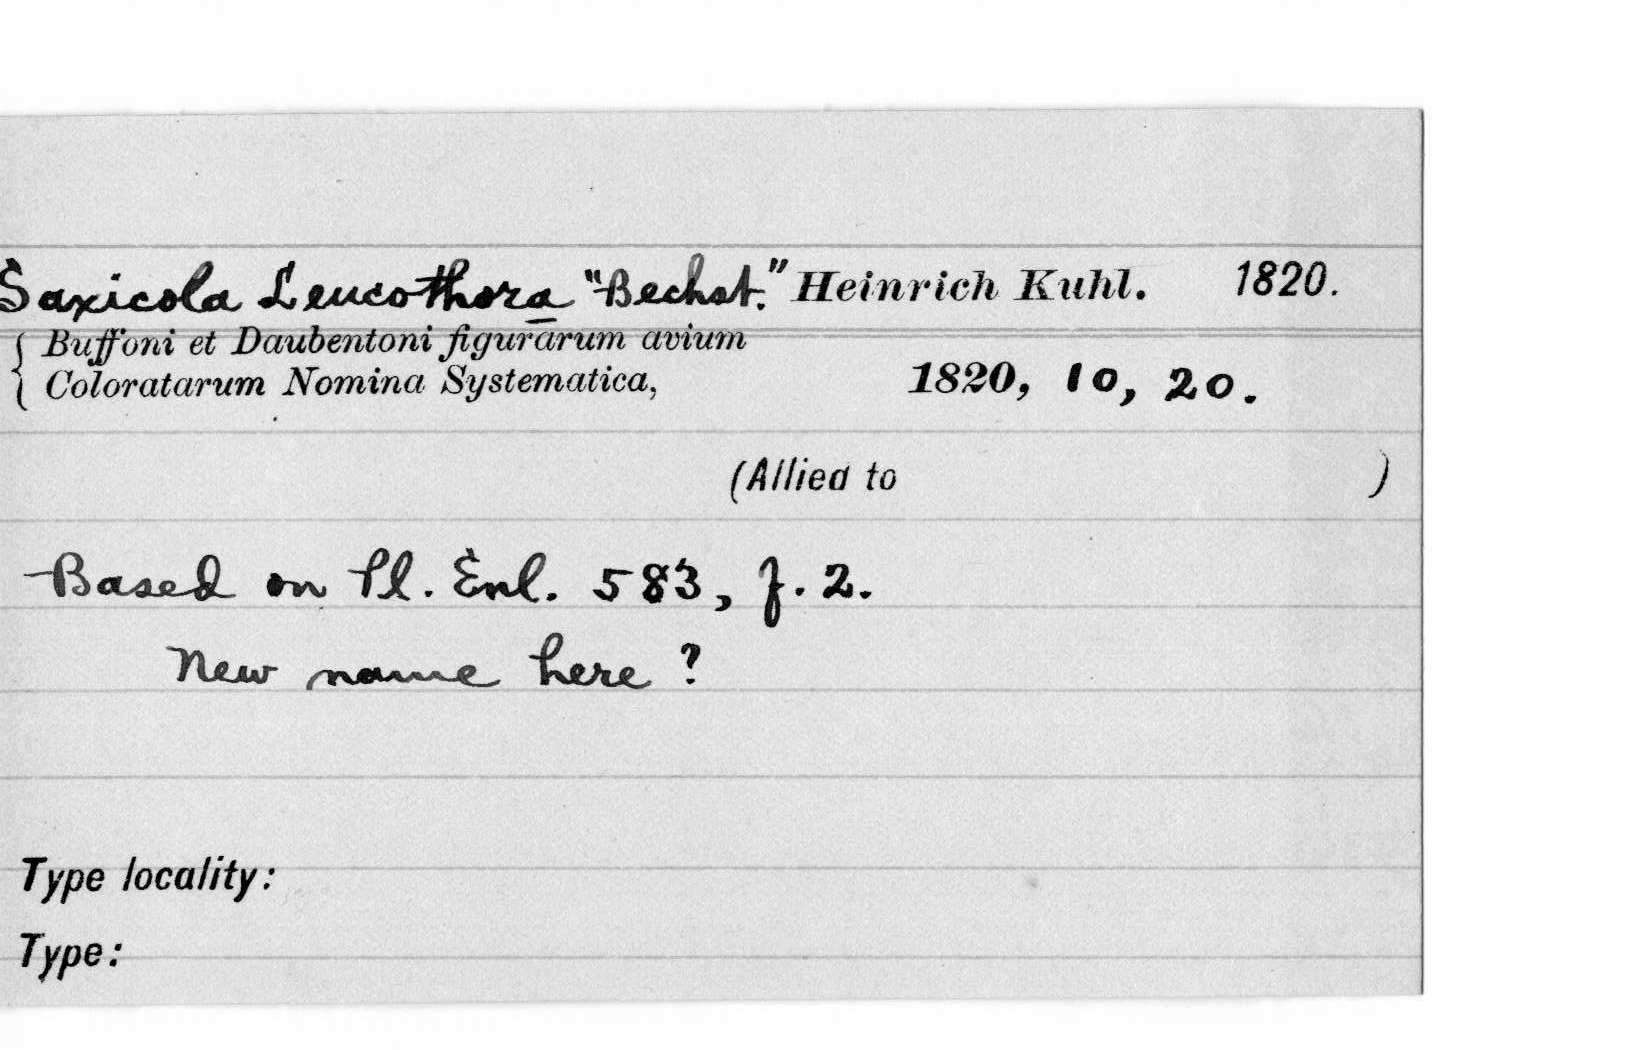 Saxicola Leucothora "Bechst." Heinrich Kuhl. 1820.
Buffoni et Daubentoni figurarum avium
Coloratarum Nomina Systematica, 1820, 10, 20.
(Allied to )
Based on Pl. Enl. 583, f. 2.
New name here?
Type locality:
Type: